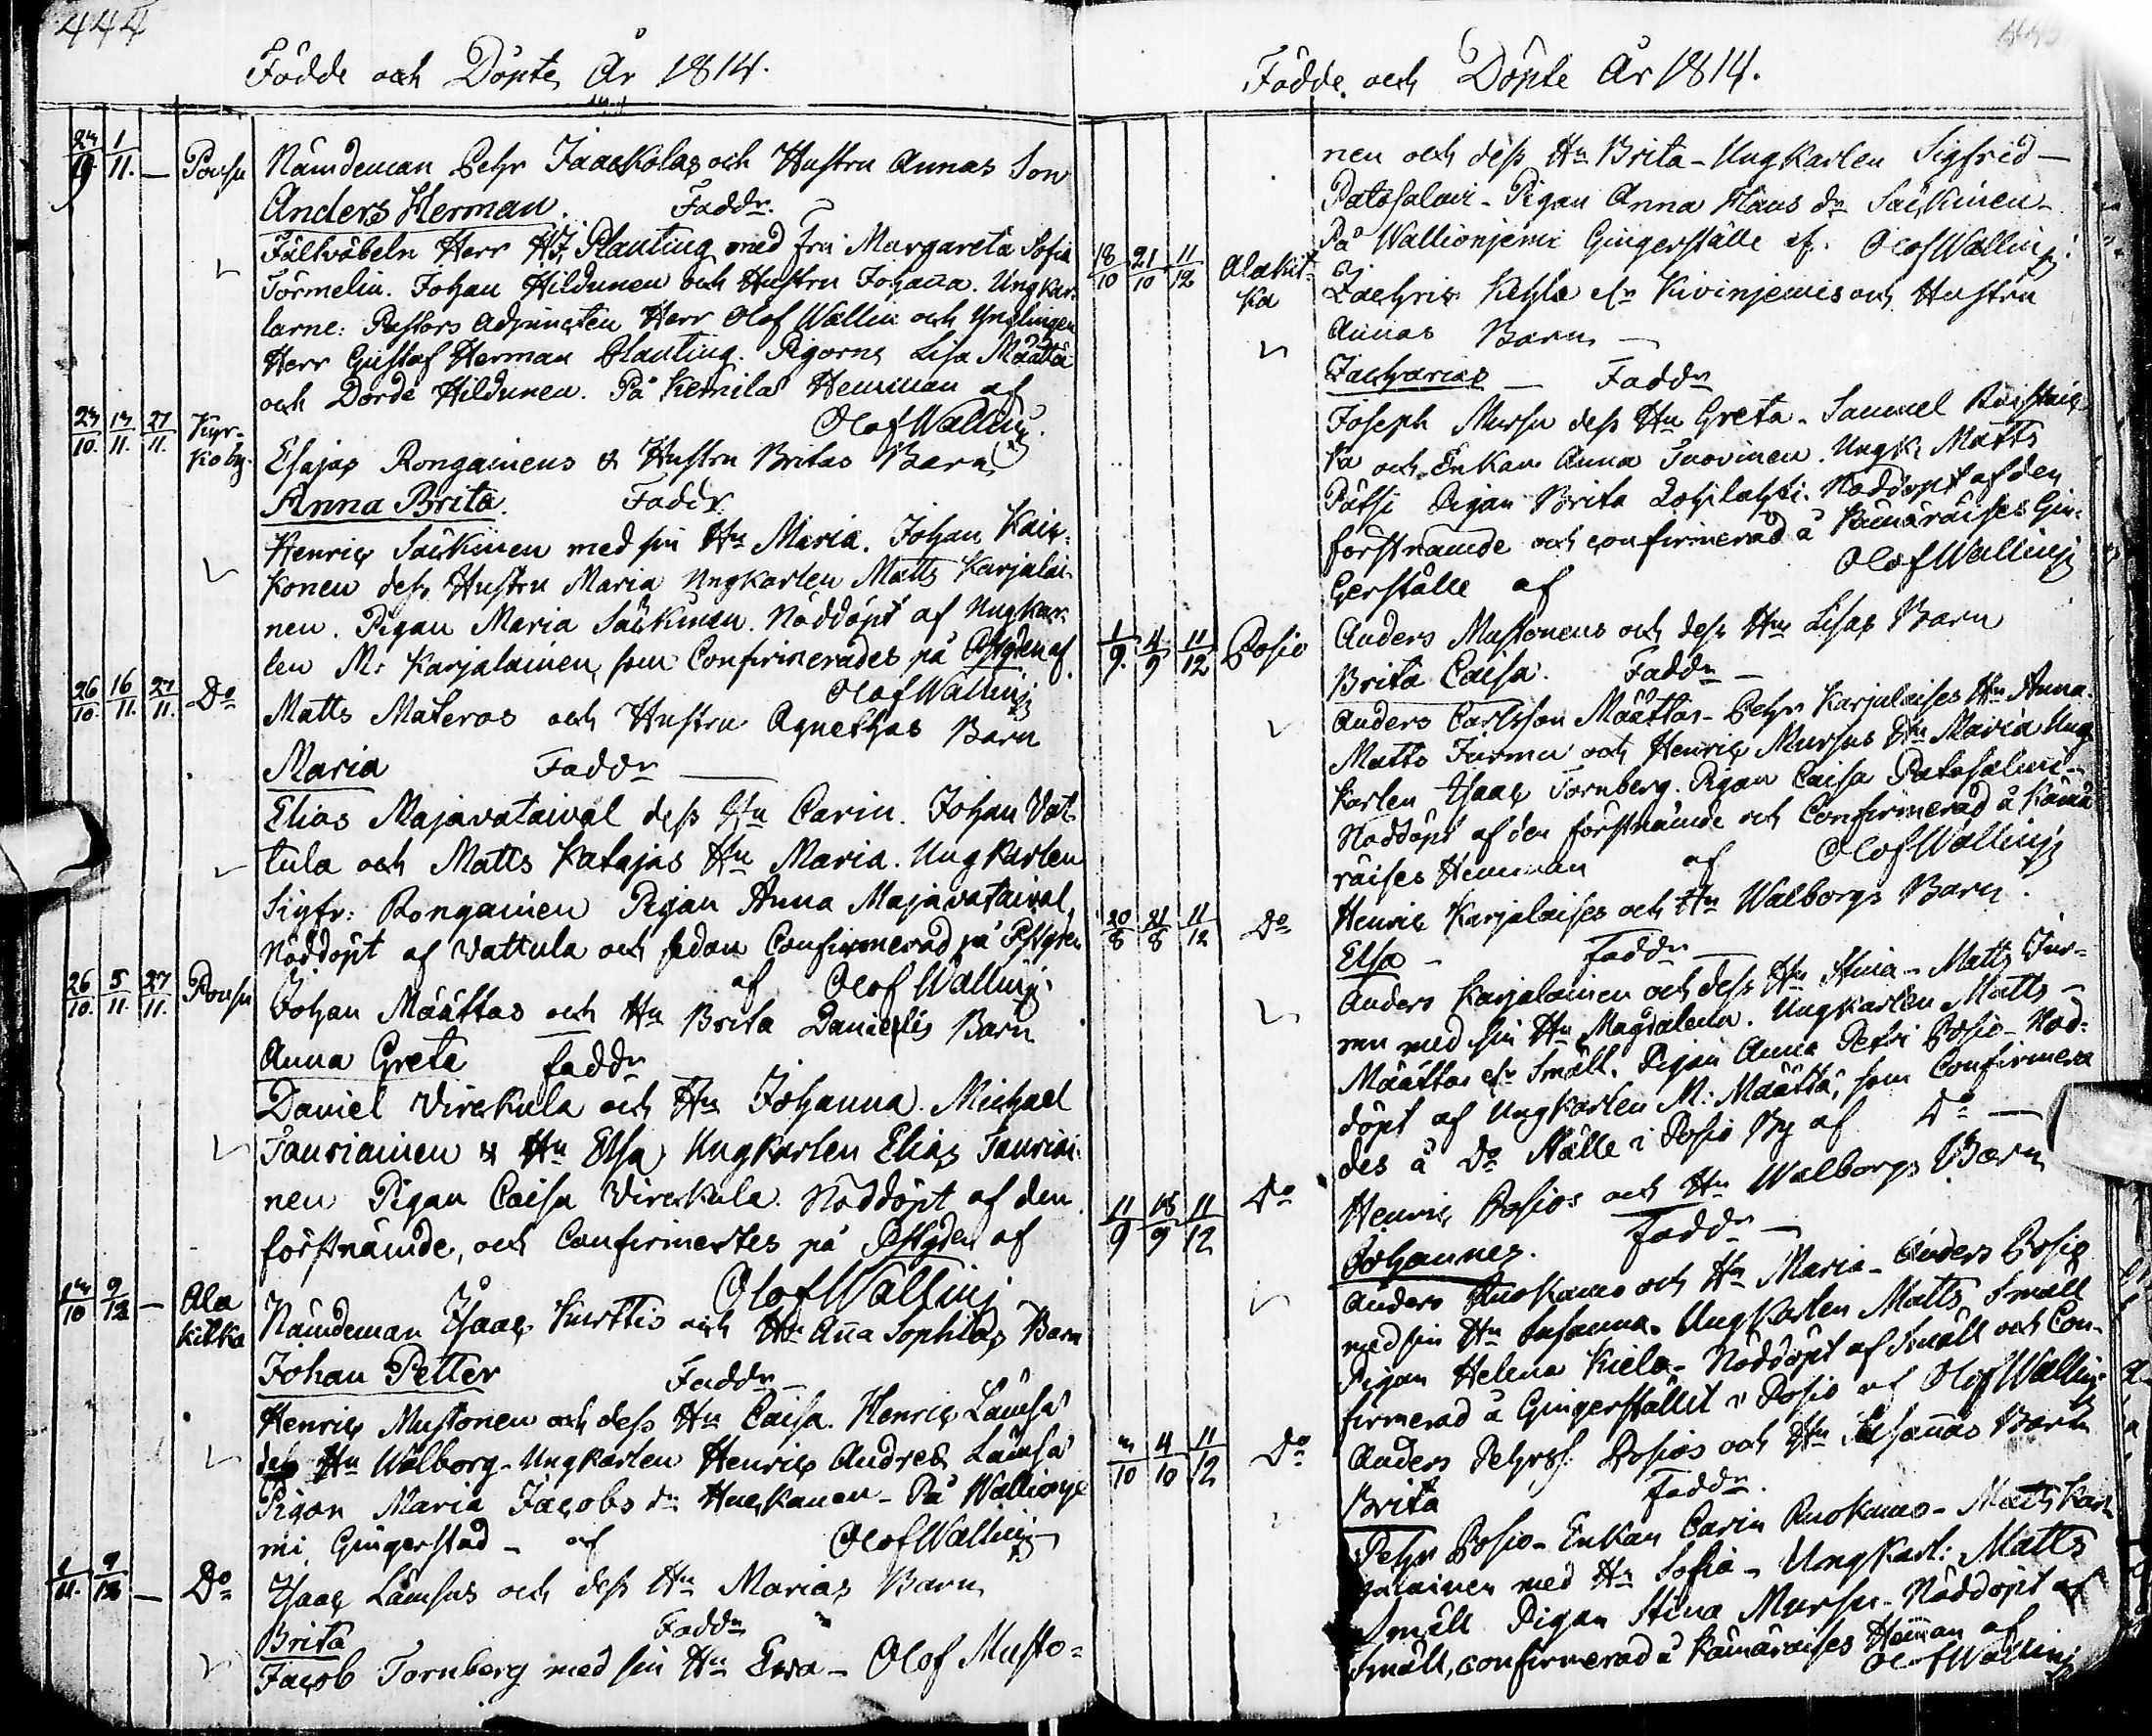 444
Födde och Döpte, År 1814.
23/10. 1/11. — Pousu Nämdeman Pehr Jaaskolas och Hustru Annas Son
Anders Herman. Faddr.
Fältväbeln Herr HJ. Planting med fru Margareta Sofia
Törmelin. Johan Hildunen och Hustru Johana. Ungkar-
larne: Pastors Adjuncten Herr Olof Wallin och Ynglingen
Herr Gustaf Herman Planting. Pigorne Lisa Määttä
och Dorde Hildunen. På Kemilas Hemman af
Olof Wallin
23/10. 13/11. 27/11. Kyr-
koby. Esajas Rongainens & Hustru Britas Barn
Anna Brita. Faddr.
Henric Säckinen med sin Hu Maria. Johan Kais-
konen dess Hustru Maria Ungkarlen Matts Karjalai-
nen. Pigan Maria Säckinen. Nöddöpt af Ungkar-
len M: Karjalainen, som Confirmerades på Pstgden af
Olof Wallin
26/10. 16/11. 27/11. Do Matts Materos och Hustru Agnethas Barn
Maria Faddr
Elias Majavataival dess Hu Carin. Johan Vat-
tula och Matts Katajas Hu Maria. Ungkarlen
Sigfr: Rongainen Pigan Anna Majavataival,
Nöddöpt af Vattula och sedan Confirmerad på Pstgden
af Olof Wallin
26/10. 5/11. 27/11. Pousu Johan Määttas och Hu Brita Danielis Barn
Anna Greta faddr
Daniel Virckula och Hu Johanna. Michael
Tauriainen & Hu Elsa Ungkarlen Elias Tauriai-
nen Pigan Caisa Virckula. Nöddöpt af den
förstnämde, och Confirmertes på Pstgden af
Olof Wallin
13/10 9/12 — Ala
kitka Nämdeman Isaac Kurttis och Hu Ana Sophias Barn
Johan Petter Faddr
Henric Mustonen och dess Hu Caisa. Henric Lämsä
dess Hu Walborg. Ungkarlen Henric Andreæ Lämsä
Pigan Maria Jacobs dr Huckanen. På Wallionje
mi, Gingerstad af Olof Wallin
1/11. 9/12 — Do Isaac Lämsas och dess Hu Marias Barn
Brita Faddr
Jacob Tornberg med sin Hu Ewa. Olof Musto-
Födde och Döpte År 1814.
nen och dess Hu Brita. Ungkarlen Sigfrid
Patosalmi. Pigan Anna Hans dr Säckinen.
På Wallionjemi Gingerställe af. Olof Wallin
18/10 21/10 11/12 Alakit-
ka Zachris Kehla el Kivinjemis och Hustru
Annas Barn
Zacharias Faddr
Joseph Mursu dess Hu Greta. Samuel
ka och Enkan Anna Juovinen. Ungk. Matts
Pätsi Pigan Brita Lohilahti. Nöddöpt af den
förstnämde och confirmerad å Kämäräises Gin-
gerställe af Olof Wallin
1/9. 4/9 11/12 Posio Anders Mustonens och dess Hu Lisas Barn
Brita Caisa. Faddr
Anders Carlsson Määttas. Pehr Karjalaises Hu Anna.
Matts Jurmu och Henric Mursus Hu Maria Ung-
karlen Isaac Tornberg. Pigan Caisa Patosalmi.
Nöddöpt af den förstnämde och Confirmerad å Kämä
räises Hemman af Olof Wallin
20/8 21/8 11/12 Do Henric Karjalaises och Hu Walborgs Barn.
Elsa faddr
Anders Karjalainen och dess Hu Stina. Matts Jur-
mu med sin Hu Magdalena. Ungkarlen Matts
Määttas el Smäll. Pigan Anna Petri Posio. Nöd-
döpt af Ungkarlen M: Määttä, som Confirmera
des å Do Ställe i Posio By af Do
11/9 18/9 11/12 Do Henric Posios och Hu Walborgs Barn
Johannes. faddr
Anders Ruokamo och Hu Maria. Anders Posio
med sin Hu Susanna. Ungkarlen Matts Smäll
Pigan Helena Kiela. Nöddöpt af Smäll och Con-
firmerad å Gingerstället i Posio af Olof Wallin
3/10 4/10 11/12 Do Anders Pehrss. Posios och Hu Susanas Barn
Brita faddr.
Pehr Posio. Enkan Carin Ruokamo. Matts Kar-
jalainen med Hu Sofia. Ungkarl: Matts
Smäll Pigan Stina Mursu. Nöddöpt af
Smäll, confirmerad å Kämäräises Heman af
Olof Wallin